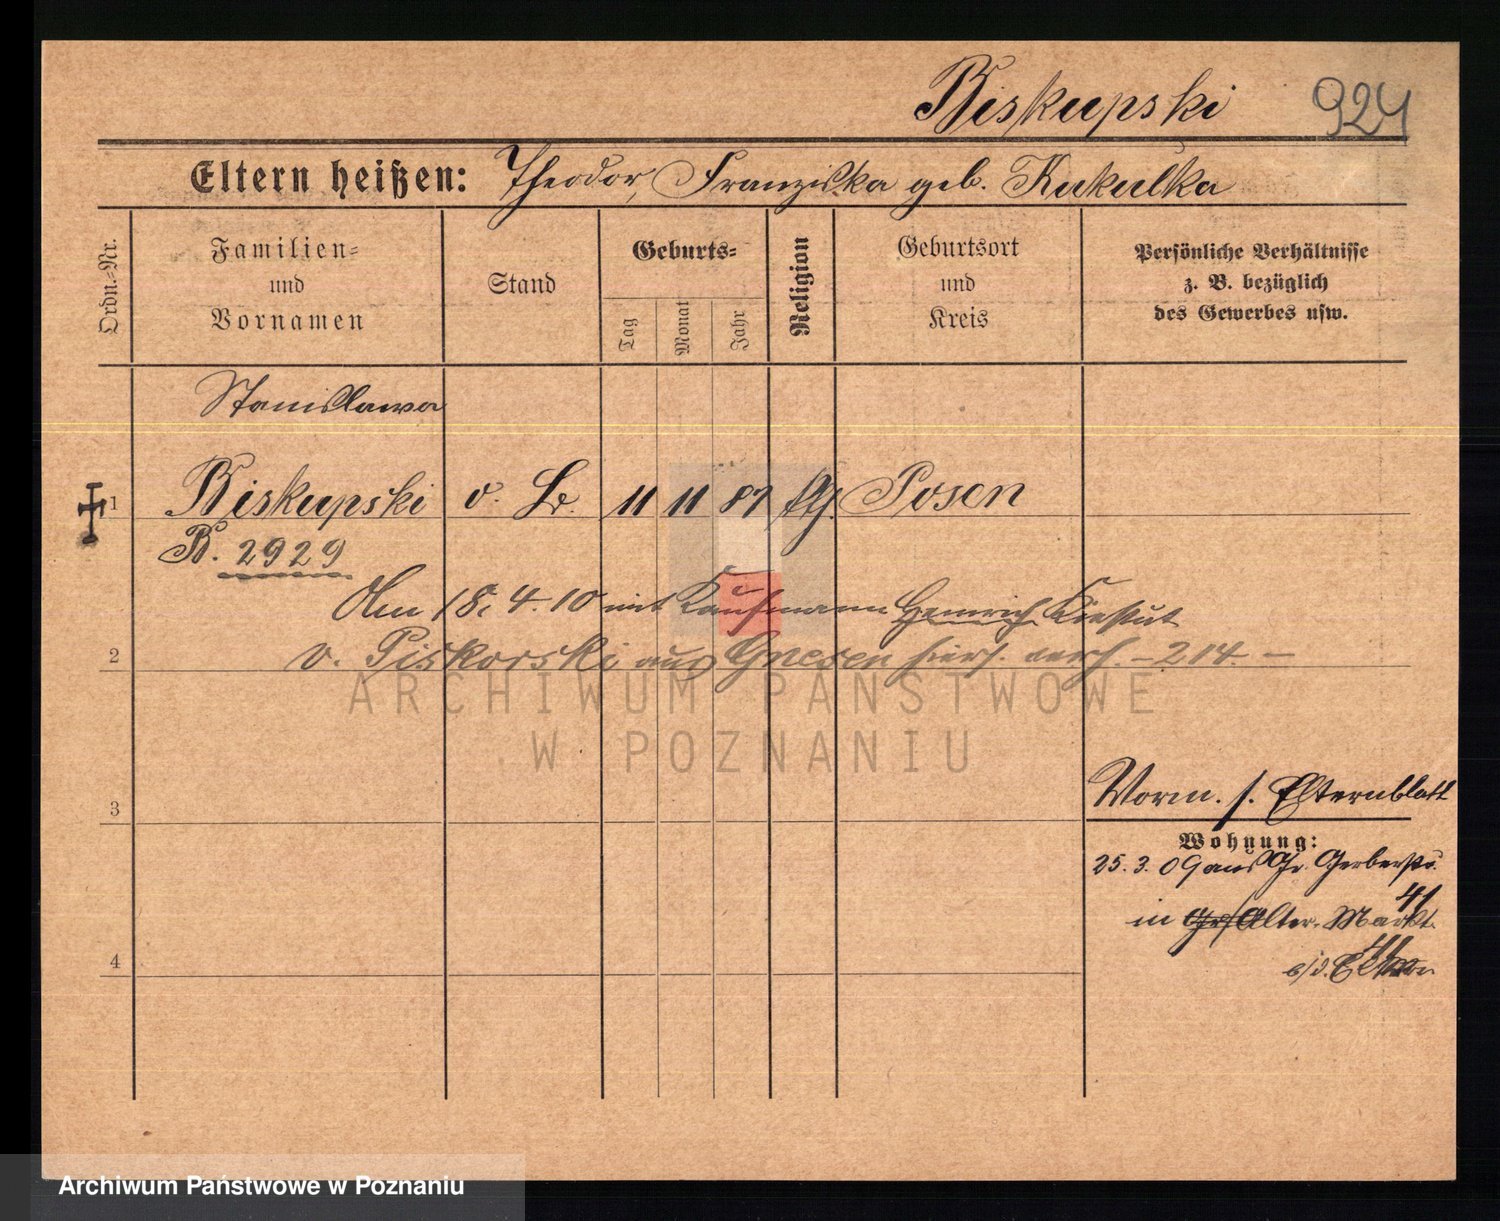 Biskupski 924
Eltern heißen: Theodor, Franziska geb. Kukulka
Ordn.-Nr.
Familien- und Vornamen
Stand
Geburts-
Tag
Monat
Jahr
Religion
Geburtsort und Kreis
Persönliche Verhältnisse z. B. bezüglich des Gewerbes usw.
Stanislawa
1 Biskupski o. 11 11 87 Posen
B. 2929
Am 18. 4. 10 mit Kaufmann Heinrich
2 v. Piskorski aus Gnesen verh. - 214. -
Vorm. s. Elternblatt
3
Wohnung:
25. 3. 09 aus Gr. Gerberstr.
41
in Alter. Markt
44
4
ARCHIWUM PAŃSTWOWE
W POZNANIU
Archiwum Państwowe w Poznaniu